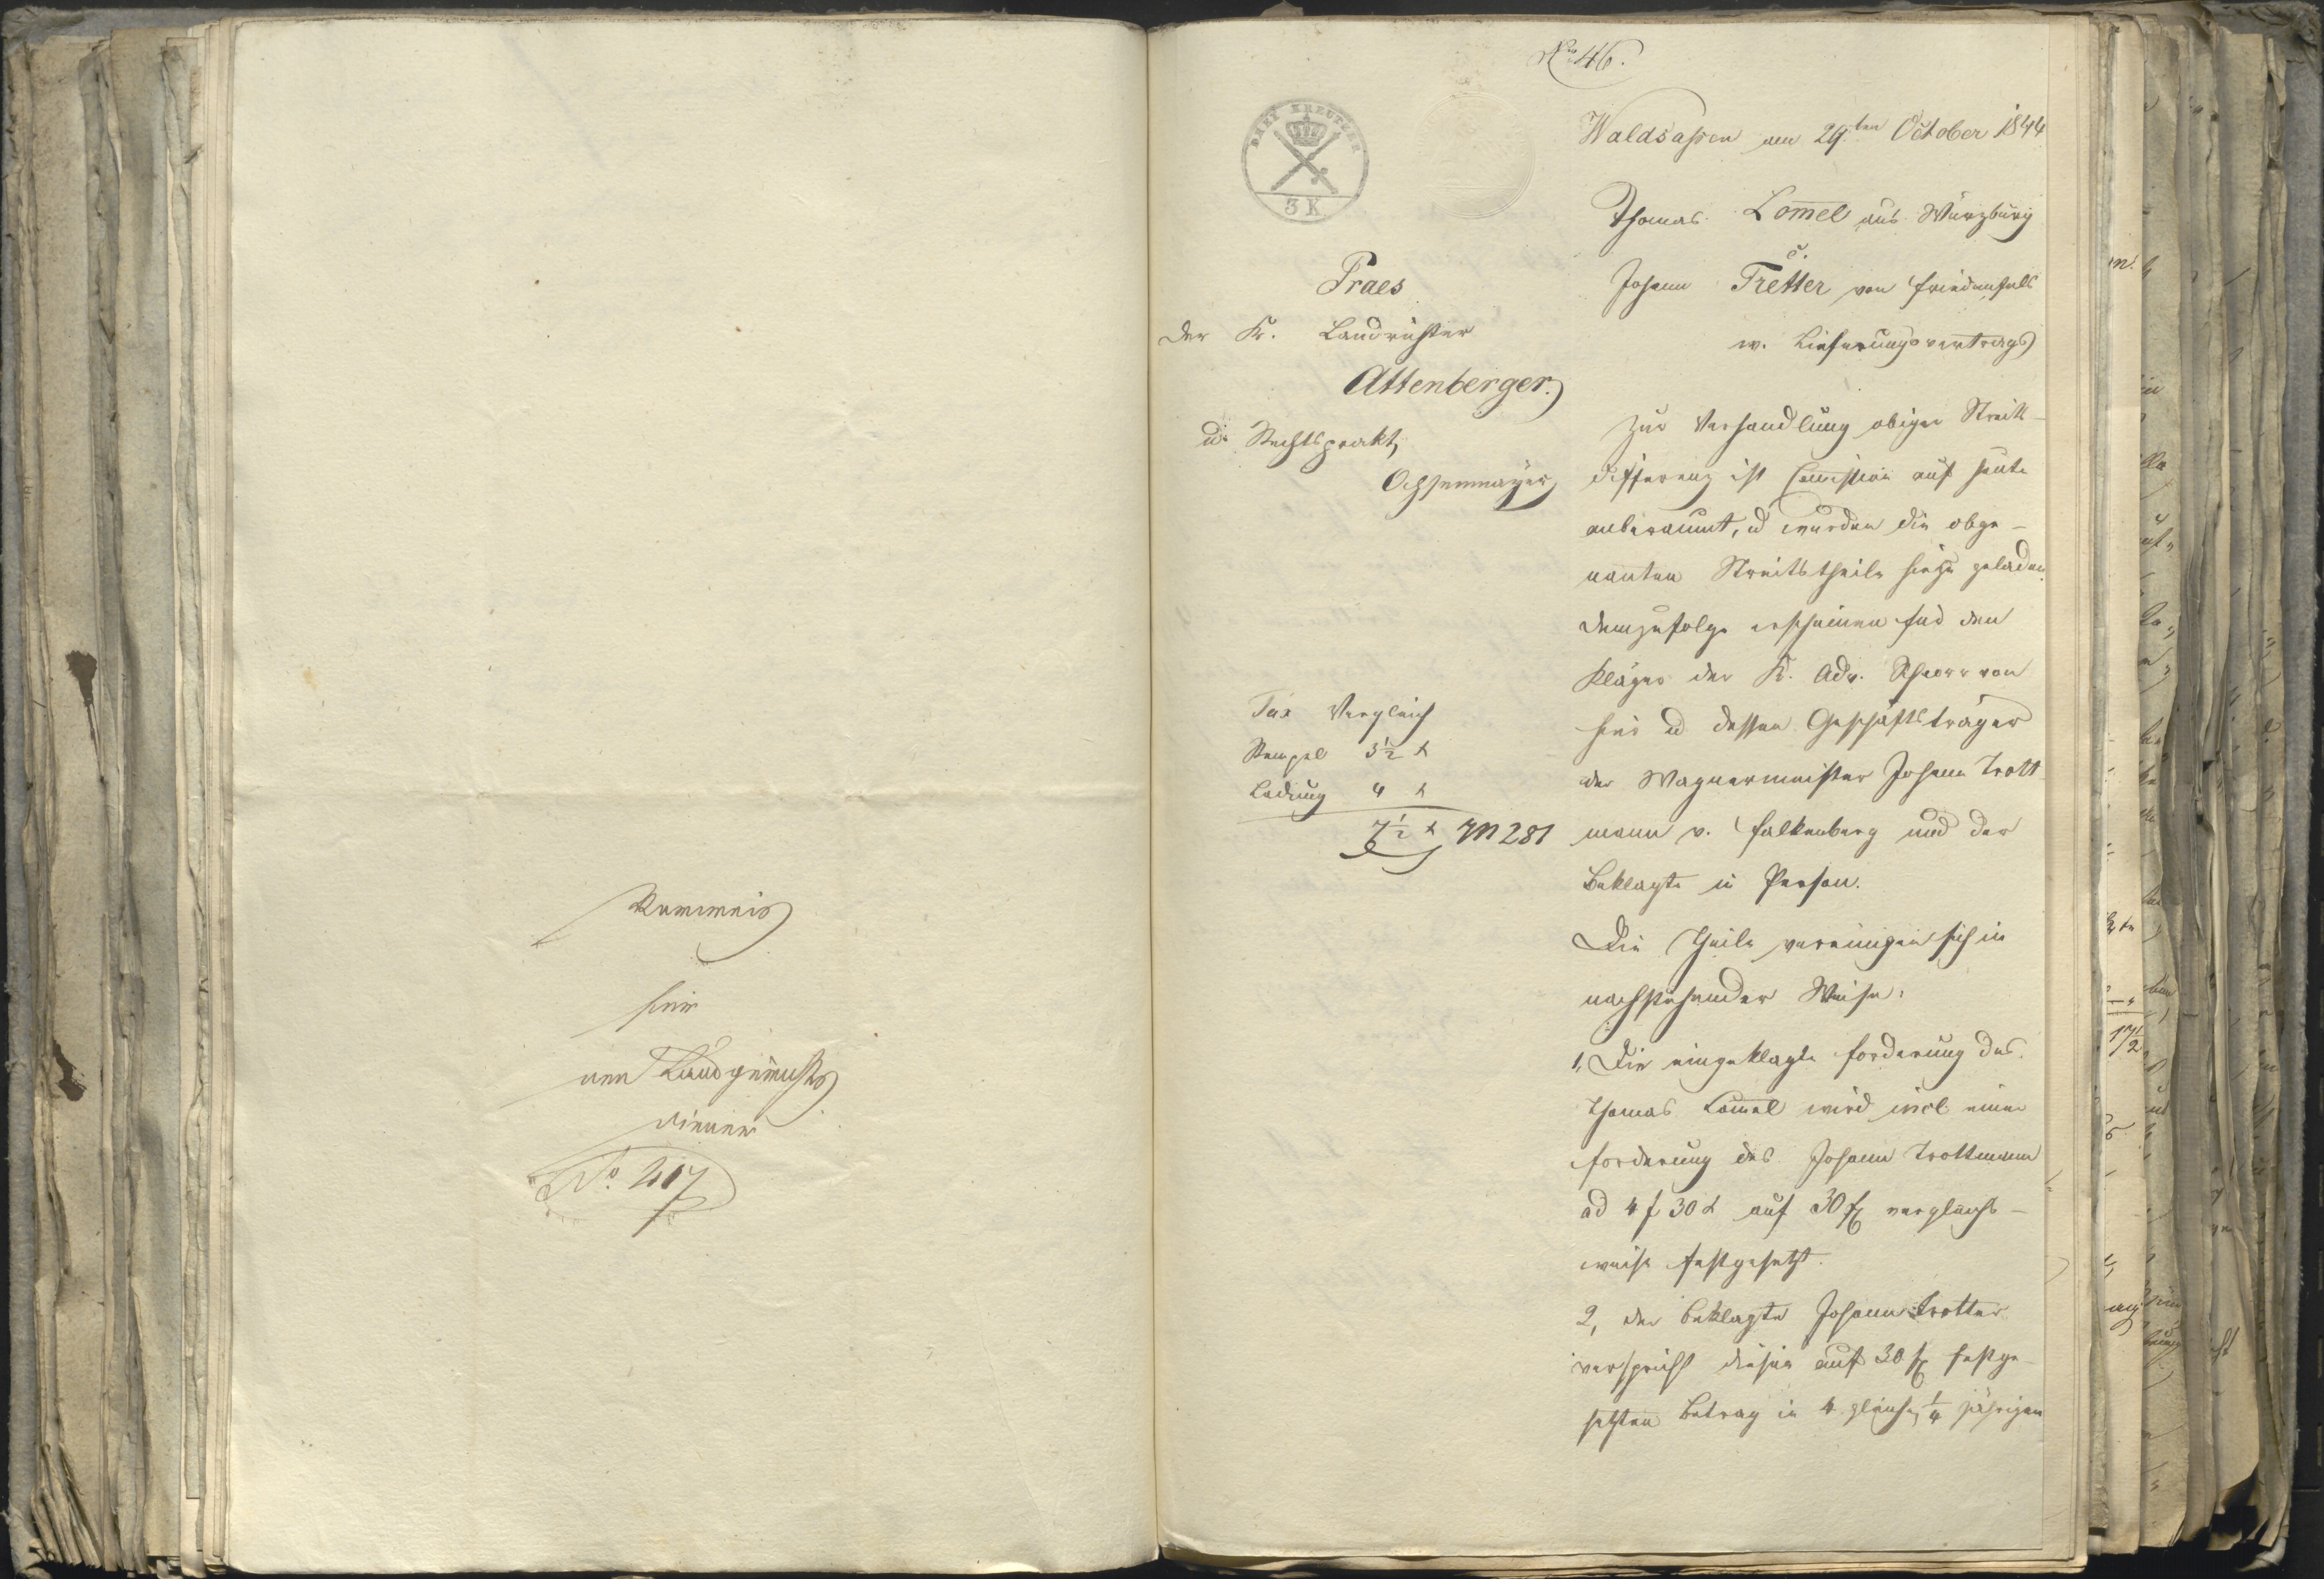 hier
No. 217
No 46.
DREY KREUTZER
3 K
Waldsaßen am 29ten October 1844
Thomas Lom̄el aus Würzburg
c.
Johann Tretter von Friedenfels
w. Lieferungsvertrags
Praes
Der K. Landrichter
Attenberger.
u. Rechtsprakt,
Ochsenmayer
Tax Vergleich
Stempel 3½ x
Ladung 4 x
7½ x M 281
Zur Verhandlung obiger Streit-
differenz ist Com̄ission auf heute
anberaumt, u wurden die obge-
nan̄ten Streitstheile hiezu geladen.
Demzufolge erscheinen für den
Kläger der K. Adv. Schorr von
hier u dessen Geschäftsträger
der Wagnermeister Johann Trott
mann v. Falkenberg und der
Beklagte in Person.
Die Theile vereinigen sich in
nachstehender Weise:
1, Die eingeklagte Forderung des
Thomas Lom̄el wird incl einer
Forderung des Johann Trottmann
ad 4 f 30 x auf 30 f vergleichs-
weise festgesetzt.
2, der Beklagte Johann Tretter
verspricht diesen auf 30 f festge-
setzten Betrag in 4 gleichen ¼ jährigen